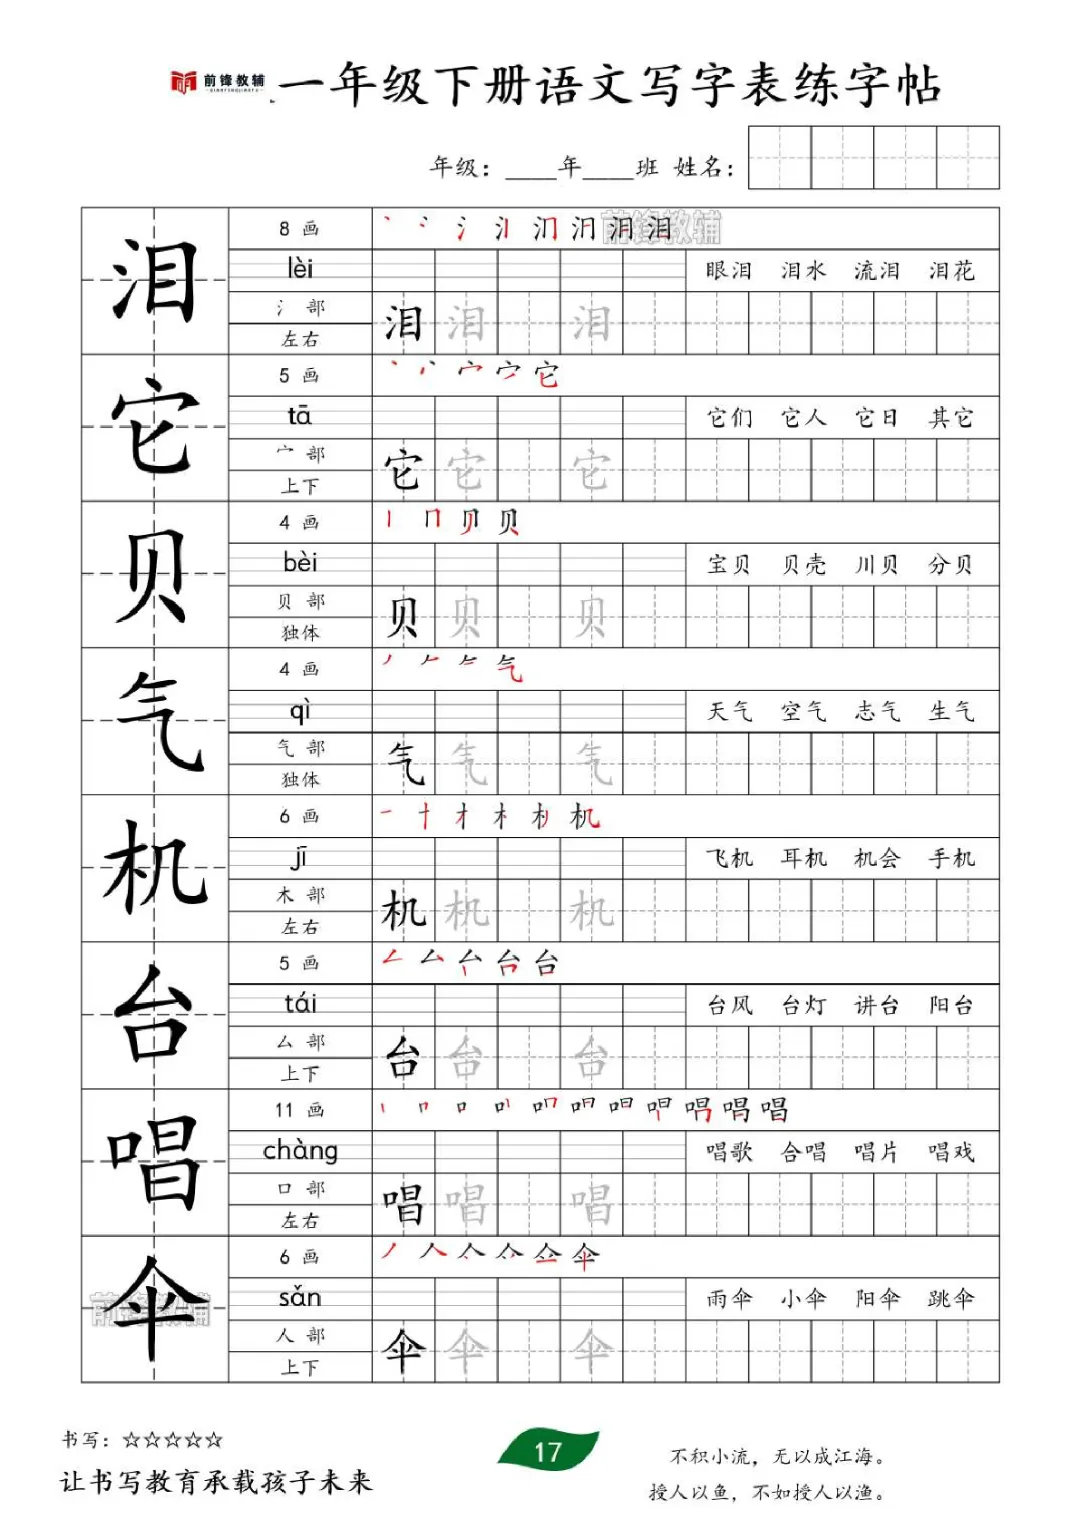 前锋教辅
一年级下册语文写字表练字帖
年级：____年____班 姓名：
泪
8 画
前锋教辅
lèi
眼泪 泪水 流泪 泪花
氵 部
泪 泪 泪
左右
它
5 画
tā
它们 它人 它日 其它
宀 部
它 它 它
上下
贝
4 画
bèi
宝贝 贝壳 川贝 分贝
贝 部
贝 贝 贝
独体
气
4 画
qì
天气 空气 志气 生气
气 部
气 气 气
独体
机
6 画
jī
飞机 耳机 机会 手机
木 部
机 机 机
左右
台
5 画
tái
台风 台灯 讲台 阳台
厶 部
台 台 台
上下
唱
11 画
chàng
唱歌 合唱 唱片 唱戏
口 部
唱 唱 唱
左右
伞
前锋教辅
6 画
sǎn
雨伞 小伞 阳伞 跳伞
人 部
伞 伞 伞
上下
书写：☆☆☆☆☆
让书写教育承载孩子未来
17
不积小流，无以成江海。
授人以鱼，不如授人以渔。